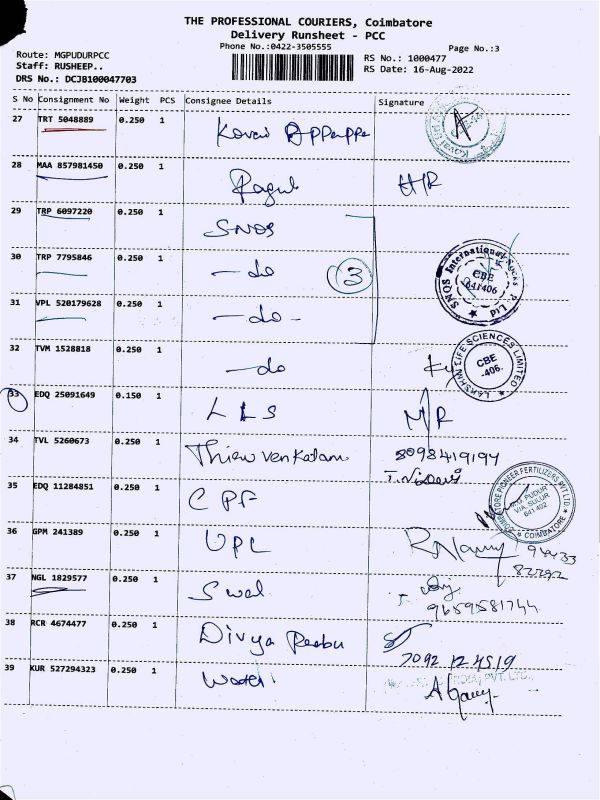 THE PROFESSIONAL COURIERS, Coimbatore
Delivery Runsheet - PCC
Phone No.:0422-3505555
Page No.:3
Route: MGPUDURPCC
Staff: RUSHEEP..
DRS No.: DCJB100047703
RS No.: 1000477
RS Date: 16-Aug-2022
S No Consignment No Weight PCS Consignee Details Signature
27 TRT 5048889 0.250 1
28 MAA 857981450 0.250 1 Ragul H/R
29 TRP 6097220 0.250 1 SNOS
30 TRP 7795846 0.250 1 -do 3
31 VPL 520179628 0.250 1 -do-
SNOS International P. Ltd CBE 641406
32 TVM 1528818 0.250 1 -do
LAKSHMI LIFE SCIENCES LIMITED CBE -406.
33 EDQ 25091649 0.150 1 LLS M/R
34 TVL 5260673 0.250 1 8098419194
35 EDQ 11284851 0.250 1 CPF
COIMBATORE PIONEER FERTILIZERS PVT LTD M.G. PUDUR VIA. SULUR 641 402 COIMBATORE
36 GPM 241389 0.250 1 UPL
37 NGL 1829577 0.250 1 Swal
9659581744
38 RCR 4674477 0.250 1 Divya
7092 12 4519
39 KUR 527294323 0.250 1
PVT. LTD.,